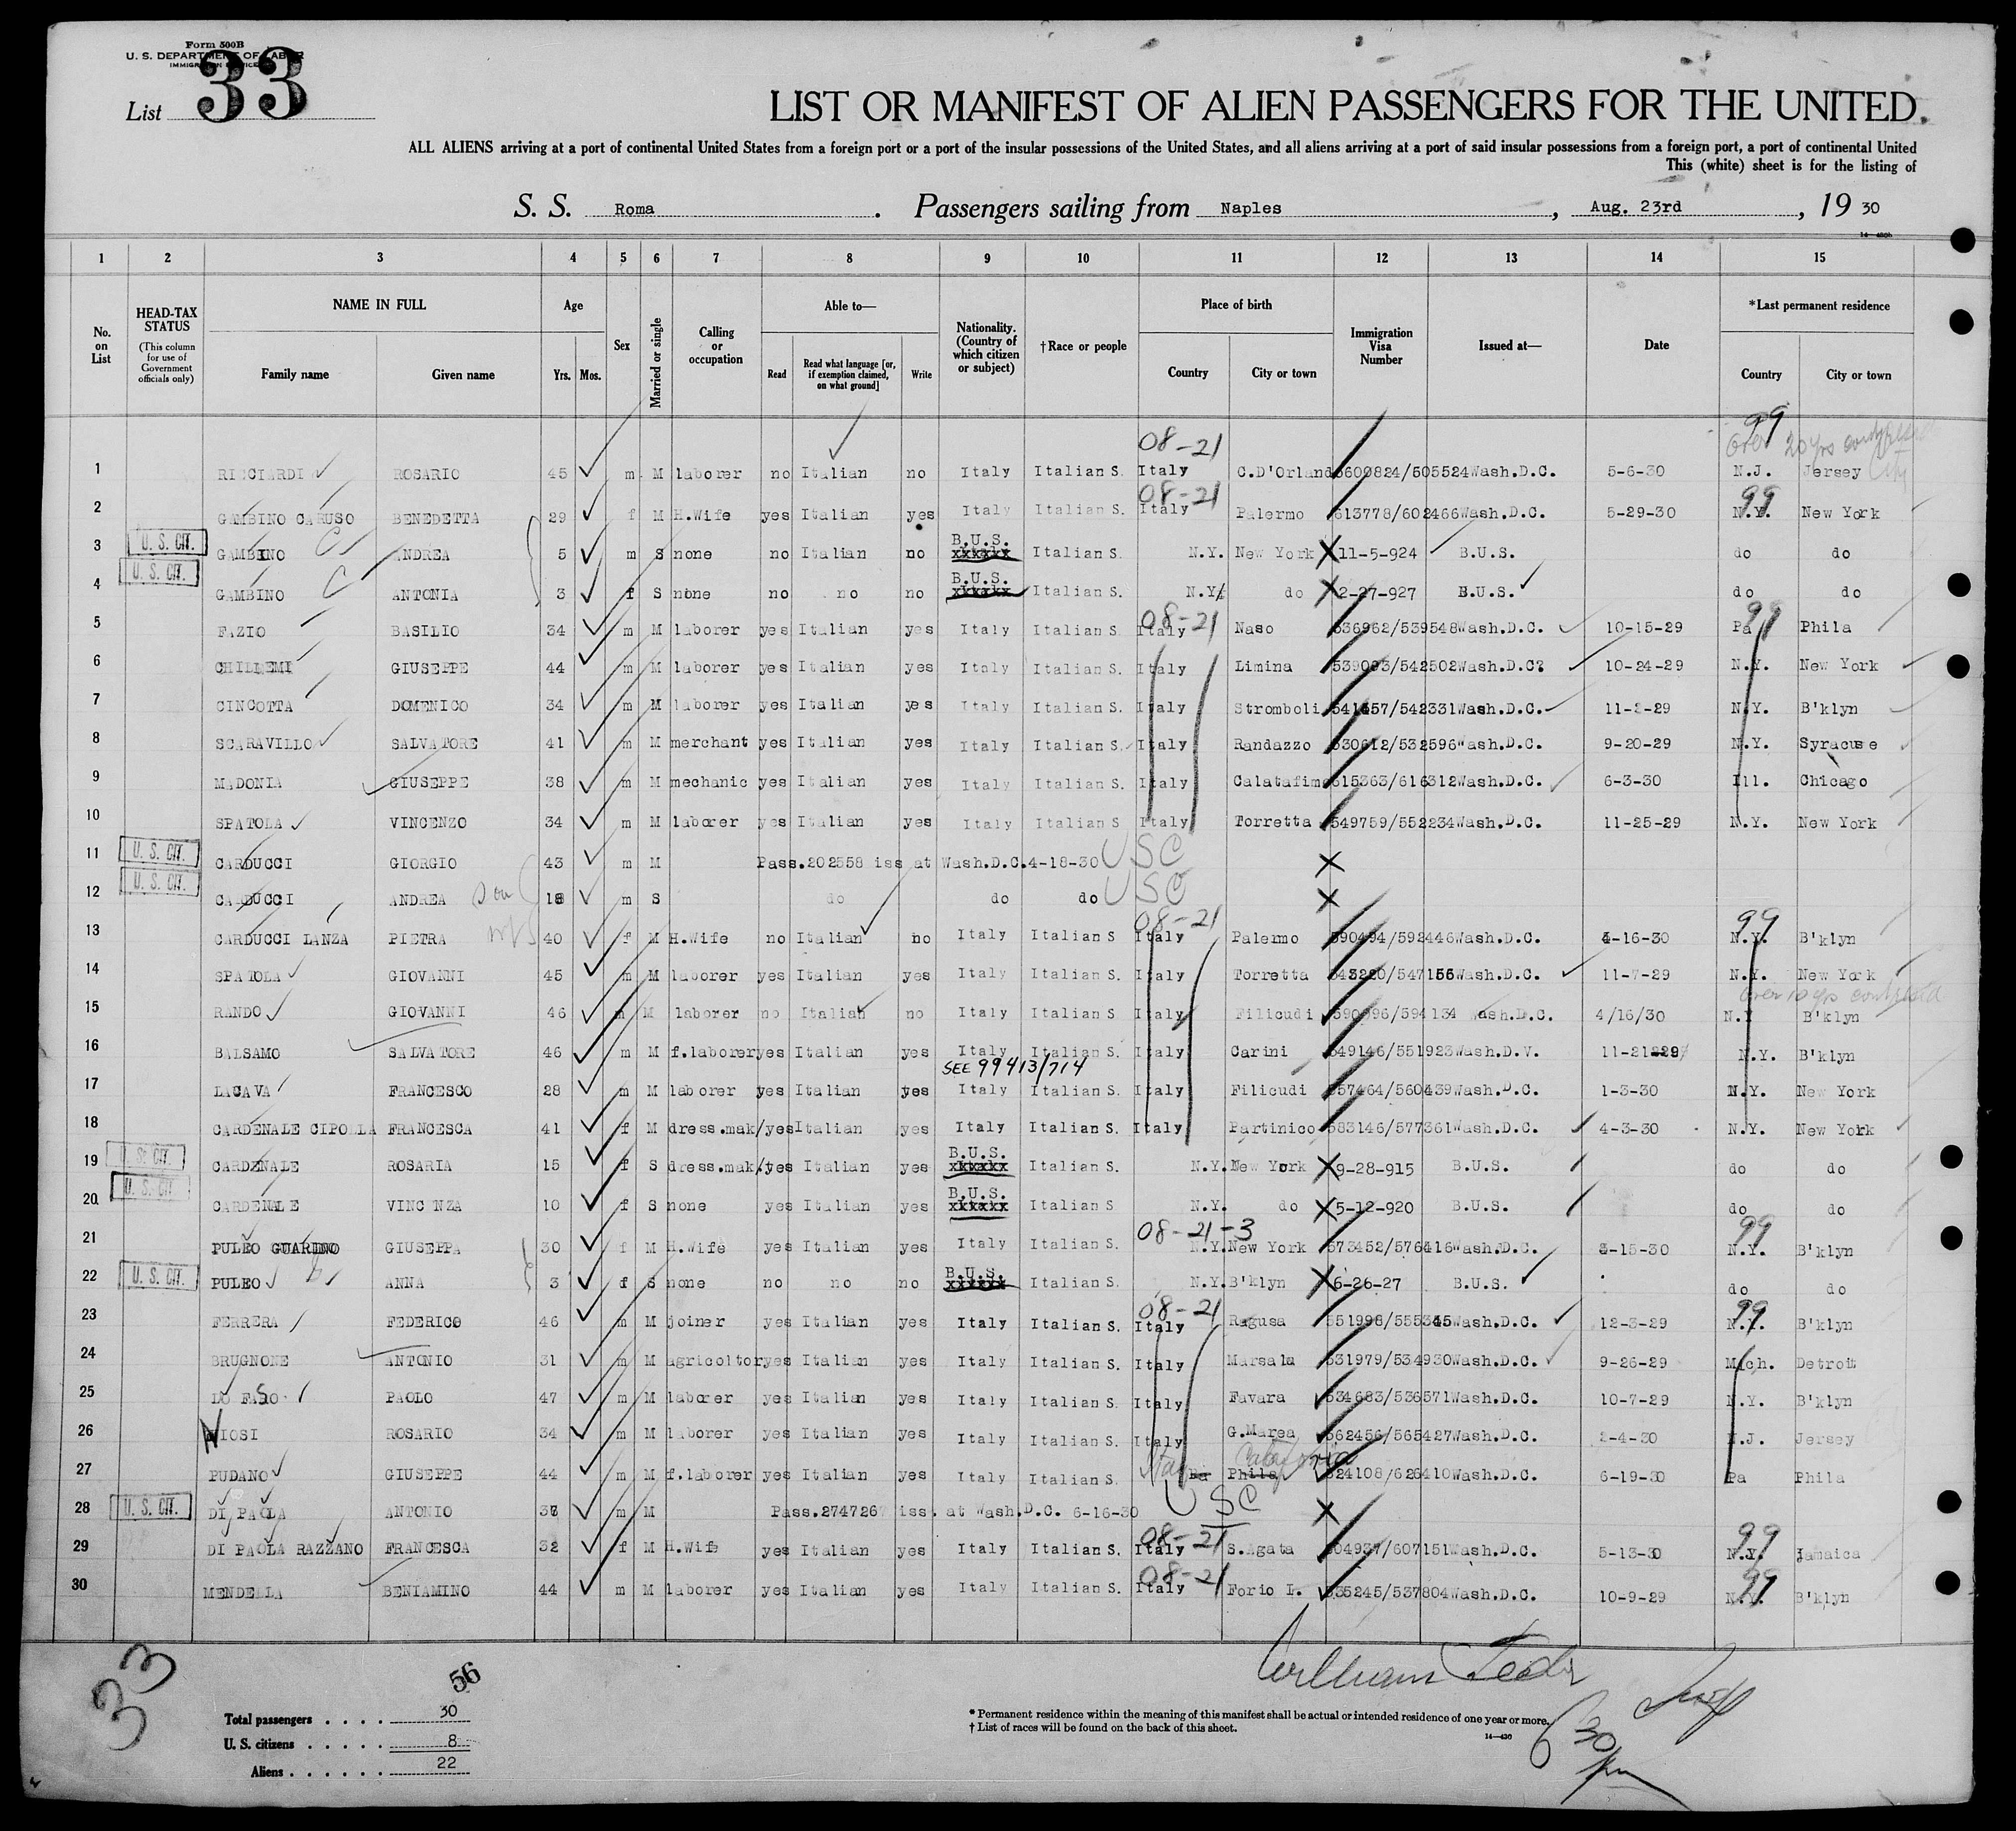 Form 500B
U. S. DEPARTMENT OF LABOR
IMMIGRATION SERVICE
List 33
LIST OR MANIFEST OF ALIEN PASSENGERS FOR THE UNITED
ALL ALIENS arriving at a port of continental United States from a foreign port or a port of the insular possessions of the United States, and all aliens arriving at a port of said insular possessions from a foreign port, a port of continental United
This (white) sheet is for the listing of
S. S. Roma . Passengers sailing from Naples , Aug. 23rd , 19 30
1 2 3 4 5 6 7 8 9 10 11 12 13 14 15
No. on List
HEAD-TAX STATUS (This column for use of Government officials only)
NAME IN FULL Family name Given name
Age Yrs. Mos.
Sex
Married or single
Calling or occupation
Able to— Read Read what language [or, if exemption claimed, on what ground] Write
Nationality. (Country of which citizen or subject)
†Race or people
Place of birth Country City or town
Immigration Visa Number
Issued at—
Date
*Last permanent residence Country City or town
08-21 99 over 20 yrs
1 RICCIARDI ROSARIO 45 m M laborer no Italian no Italy Italian S. Italy C.D'Orland 600824/605524 Wash.D.C. 5-6-30 N.J. Jersey City
08-21 99
2 GAMBINO CARUSO BENEDETTA 29 f M H.Wife yes Italian yes Italy Italian S. Italy Palermo 613778/602466 Wash.D.C. 5-29-30 N.Y. New York
3 U. S. CIT. GAMBINO ANDREA 5 m S none no Italian no B.U.S. xxxxxx Italian S. N.Y. New York X 11-5-924 B.U.S. do do
4 U. S. CIT. GAMBINO ANTONIA 3 f S none no no no B.U.S. xxxxxx Italian S. N.Y. do X 2-27-927 B.U.S. do do
08-21 99
5 FAZIO BASILIO 34 m M laborer yes Italian yes Italy Italian S. Italy Naso 536962/539548 Wash.D.C. 10-15-29 Pa Phila
6 CHILLEMI GIUSEPPE 44 m M laborer yes Italian yes Italy Italian S. Italy Limina 539093/542502 Wash.D.C? 10-24-29 N.Y. New York
7 CINCOTTA DOMENICO 34 m M laborer yes Italian yes Italy Italian S. Italy Stromboli 541457/542331 Wash.D.C. 11-2-29 N.Y. B'klyn
8 SCARAVILLO SALVATORE 41 m M merchant yes Italian yes Italy Italian S. Italy Randazzo 530612/532596 Wash.D.C. 9-20-29 N.Y. Syracuse
9 MADONIA GIUSEPPE 38 m M mechanic yes Italian yes Italy Italian S. Italy Calatafim 615363/616312 Wash.D.C. 6-3-30 Ill. Chicago
10 SPATOLA VINCENZO 34 m M laborer yes Italian yes Italy Italian S Italy Torretta 549759/552234 Wash.D.C. 11-25-29 N.Y. New York
11 U. S. CIT. CARDUCCI GIORGIO 43 m M Pass.202558 iss at Wash.D.C.4-18-30 USC X
12 U. S. CIT. CARDUCCI ANDREA son 18 m S do do do USC X
08-21 99
13 CARDUCCI LANZA PIETRA wf 40 f M H.Wife no Italian no Italy Italian S Italy Palermo 590494/592446 Wash.D.C. 4-16-30 N.Y. B'klyn
14 SPATOLA GIOVANNI 45 m M laborer yes Italian yes Italy Italian S. Italy Torretta 543220/547156 Wash.D.C. 11-7-29 N.Y. New York
over 10 yrs
15 RANDO GIOVANNI 46 m M laborer no Italian no Italy Italian S Italy Filicudi 590996/594134 Wash.D.C. 4/16/30 N.Y B'klyn
16 BALSAMO SALVATORE 46 m M f.laborer yes Italian yes Italy Italian S. Italy Carini 549146/551923 Wash.D.V. 11-21-29 N.Y. B'klyn
SEE 99413/714
17 LACAVA FRANCESCO 28 m M laborer yes Italian yes Italy Italian S. Italy Filicudi 557464/560439 Wash.D.C. 1-3-30 N.Y. New York
18 CARDENALE CIPOLLA FRANCESCA 41 f M dress.mak/ yes Italian yes Italy Italian S. Italy Partinico 583146/577361 Wash.D.C. 4-3-30 N.Y. New York
19 U. S. CIT. CARDENALE ROSARIA 15 f S dress.mak. yes Italian yes B.U.S. xxxxxx Italian S. N.Y. New York X 9-28-915 B.U.S. do do
20 U. S. CIT. CARDENALE VINCENZA 10 f S none yes Italian yes B.U.S. xxxxxx Italian S N.Y. do X 5-12-920 B.U.S. do do
08-21-3 99
21 PULEO GUARINO GIUSEPPA 30 f M H.Wife yes Italian yes Italy Italian S. N.Y. New York 573452/576416 Wash.D.C. 3-15-30 N.Y. B'klyn
22 U. S. CIT. PULEO ANNA 3 f S none no no no B.U.S. xxxxxx Italian S. N.Y. B'klyn X 6-26-27 B.U.S. do do
08-21 99
23 FERRERA FEDERICO 46 m M joiner yes Italian yes Italy Italian S. Italy Ragusa 551996/555345 Wash.D.C. 12-3-29 N.Y. B'klyn
24 BRUGNONE ANTONIO 31 m M agricoltor yes Italian yes Italy Italian S. Italy Marsala 531979/534930 Wash.D.C. 9-26-29 Mich. Detroit
25 LO FASO PAOLO 47 m M laborer yes Italian yes Italy Italian S. Italy Favara 534683/536571 Wash.D.C. 10-7-29 N.Y. B'klyn
26 NIOSI ROSARIO 34 m M laborer yes Italian yes Italy Italian S. Italy G.Marea 562456/565427 Wash.D.C. 2-4-30 N.J. Jersey
27 PUDANO GIUSEPPE 44 m M f.laborer yes Italian yes Italy Italian S. Italy Pa Phila 624108/626410 Wash.D.C. 6-19-30 Pa Phila
28 U. S. CIT. DI PAOLA ANTONIO 38 m M Pass.274726 iss. at Wash.D.C. 6-16-30 USC X
08-21 99
29 DI PAOLA RAZZANO FRANCESCA 32 f M H.Wife yes Italian yes Italy Italian S. Italy S.Agata 604937/607151 Wash.D.C. 5-13-30 N.Y. Jamaica
08-21 99
30 MENDELLA BENIAMINO 44 m M laborer yes Italian yes Italy Italian S. Italy Forio I. 535245/537804 Wash.D.C. 10-9-29 N.Y. B'klyn
33
56
Total passengers . . . . 30
U. S. citizens . . . . . 8
Aliens . . . . . . 22
William
* Permanent residence within the meaning of this manifest shall be actual or intended residence of one year or more.
† List of races will be found on the back of this sheet.
6 30 pm